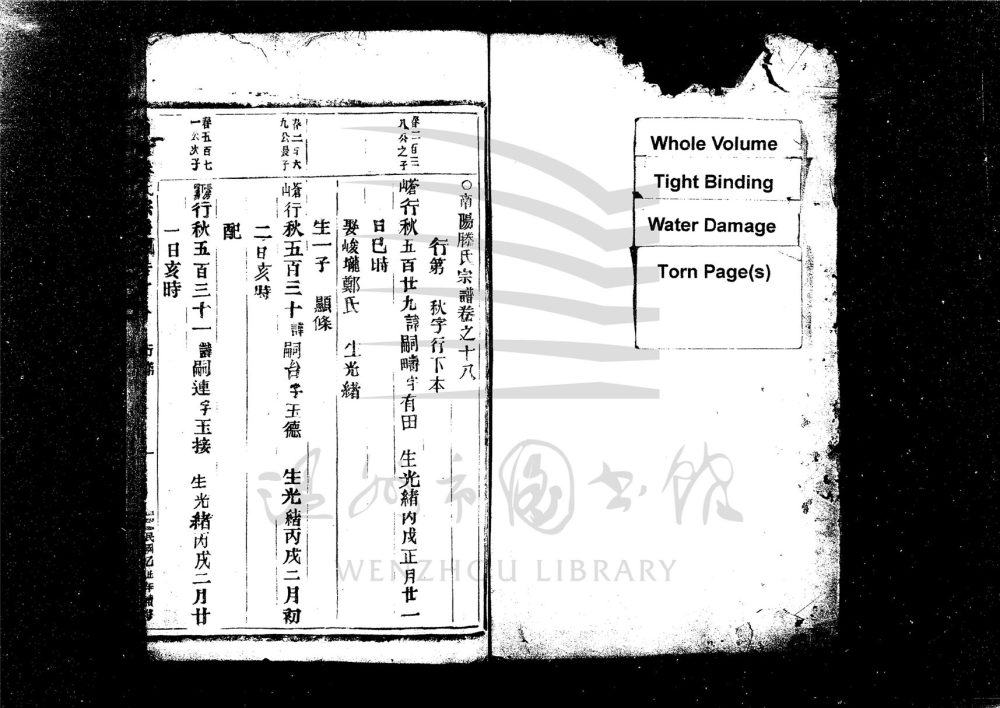 Whole Volume
Tight Binding
Water Damage
Torn Page(s)
○南陽滕氏宗譜卷之十八
行第 秋字行下本
春二百三
八公之子
行秋五百廿九諱嗣疇字有田 生光緒丙戌正月廿一
日巳時
娶峻壠鄭氏 生光緒
生一子 顯條
春二百六
九公長子
行秋五百三十諱嗣台字玉德 生光緒丙戌二月初
二日亥時
配
春五百七
一公次子
行秋五百三十一諱嗣連字玉接 生光緒丙戌二月廿
一日亥時
温州市圖書館
WENZHOU LIBRARY